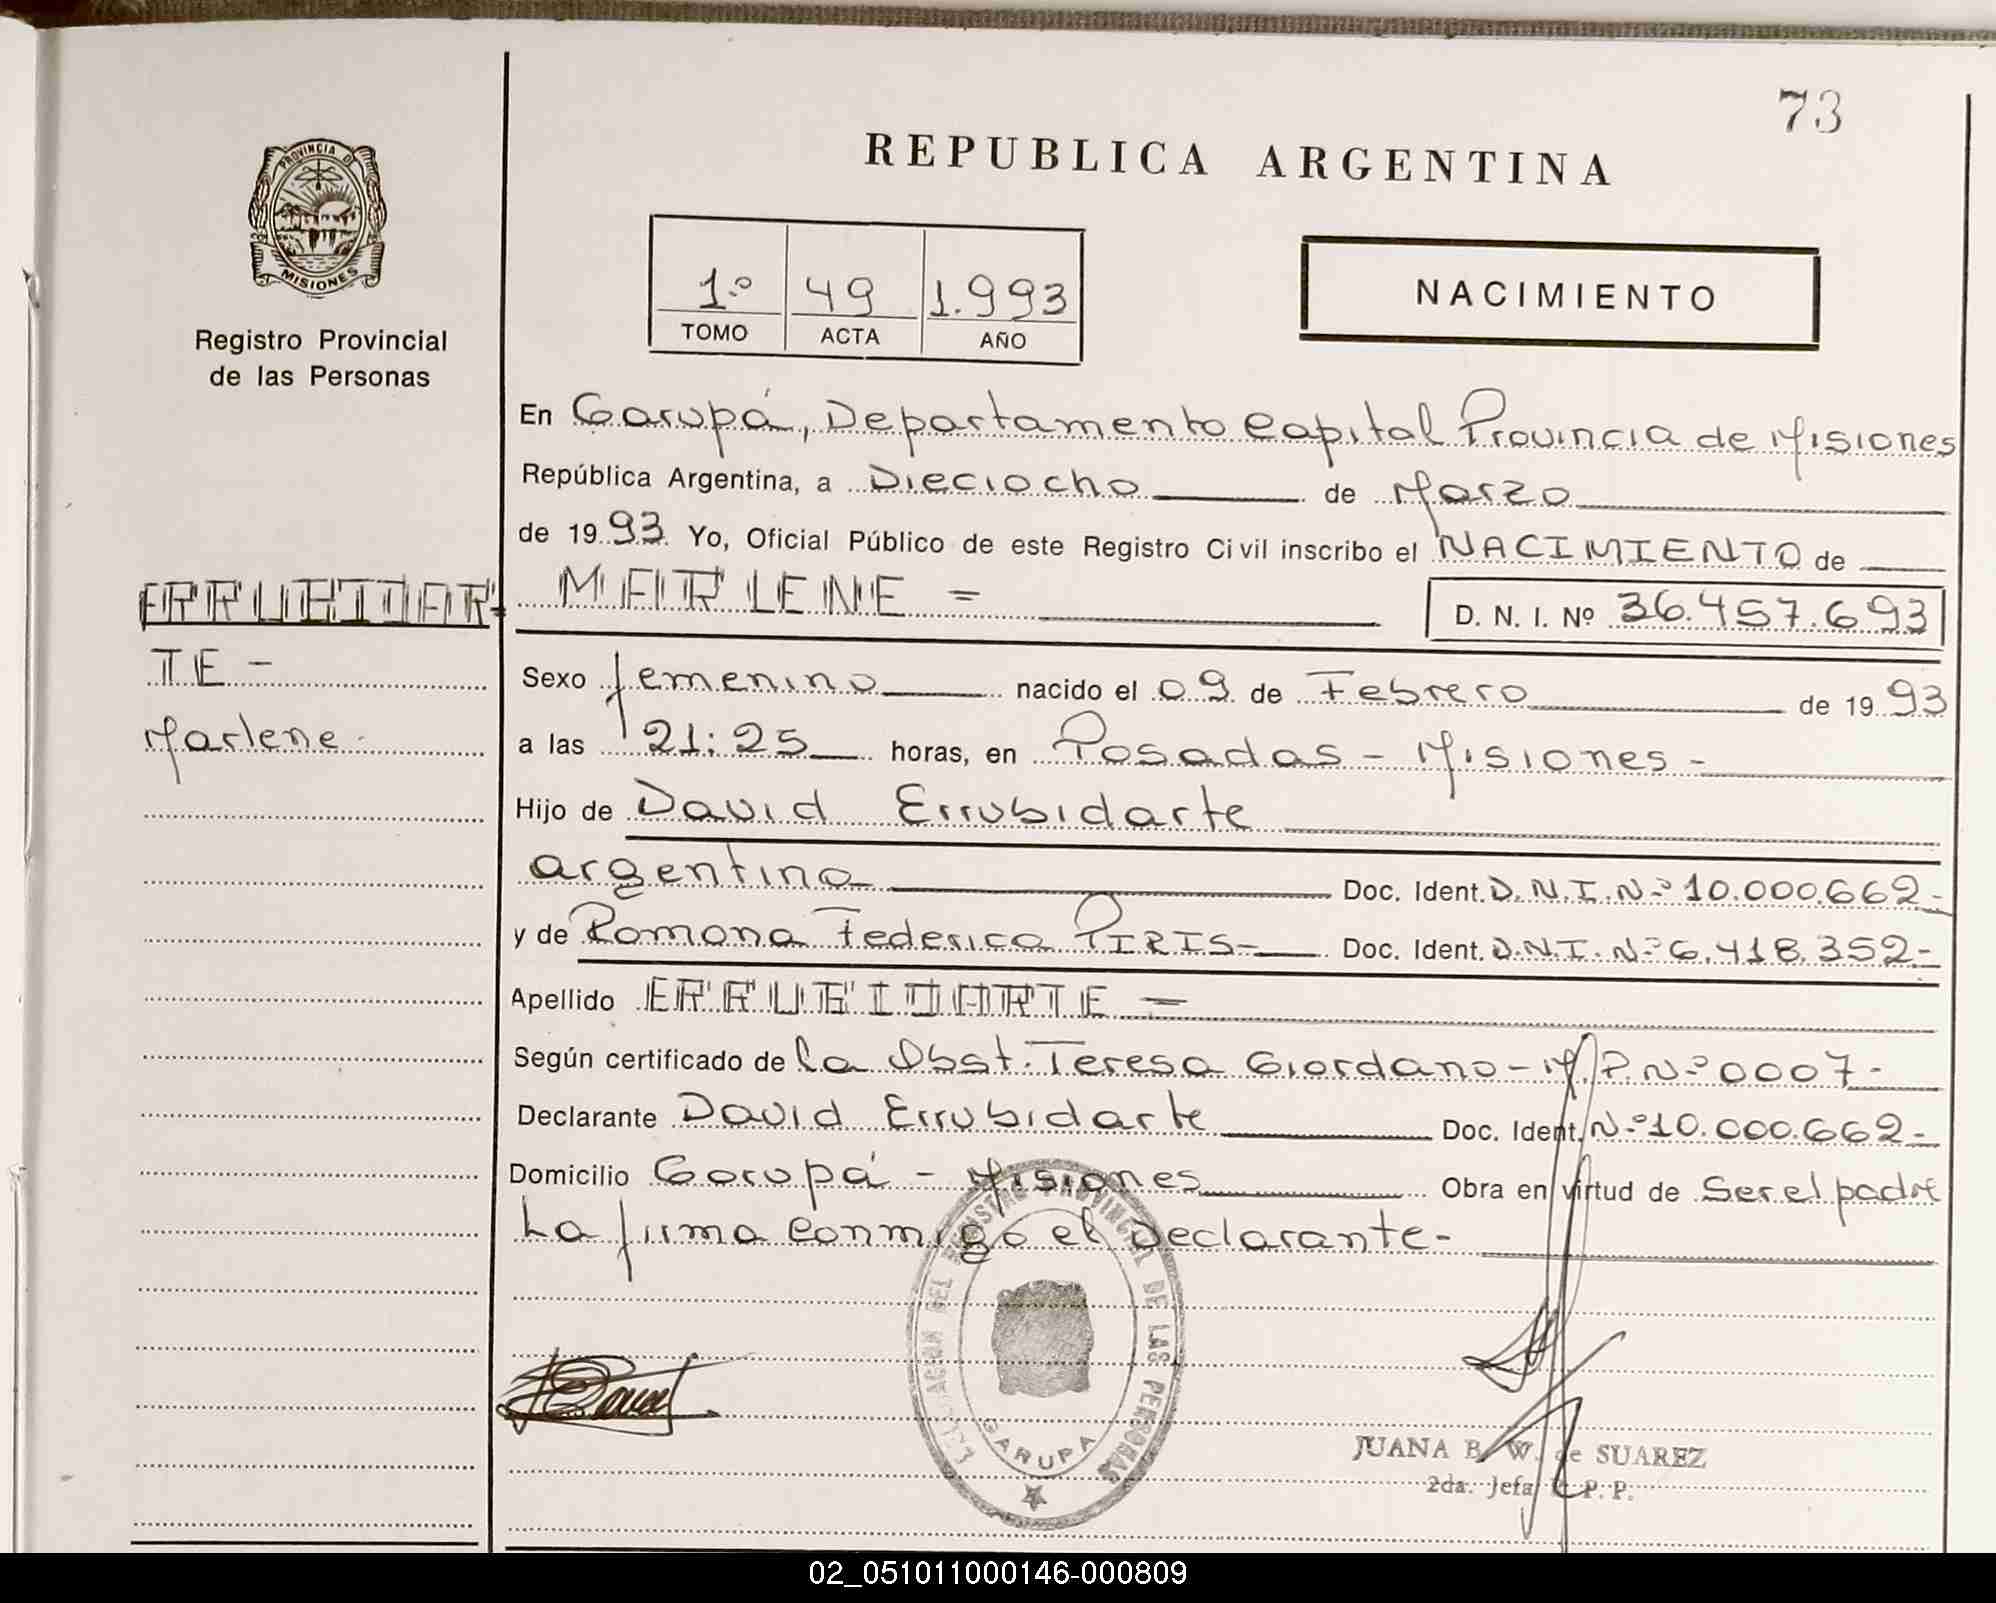 73
REPUBLICA ARGENTINA
PROVINCIA DE
MISIONES
Registro Provincial
de las Personas
1º 49 1.993
TOMO ACTA AÑO
NACIMIENTO
En Garupá, Departamento Capital Provincia de Misiones
República Argentina, a Dieciocho de Marzo
de 1993 Yo, Oficial Público de este Registro Civil inscribo el NACIMIENTO de
ERRUBIDAR-
MARLENE =
D. N. I. Nº 36.457.693
TE -
Marlene -
Sexo femenino nacido el 09 de Febrero de 1993
a las 21:25 horas, en Posadas - Misiones -
Hijo de David Errubidarte
argentino Doc. Ident. D.N.I.Nº 10.000.662-
y de Romona Federica PIRIS- Doc. Ident. D.N.I.Nº 6.418.352-
Apellido ERRUBIDARTE -
Según certificado de la Obst. Teresa Giordano - M.P.Nº 0007-
Declarante David Errubidarte Doc. Ident. Nº 10.000.662-
Domicilio Garupá - Misiones Obra en virtud de Ser el padre
La firma conmigo el Declarante-
DELEGACION DEL REGISTRO PROVINCIAL DE LAS PERSONAS
GARUPA
JUANA B. W. de SUAREZ
2da. Jefa R.P.P.
02_051011000146-000809